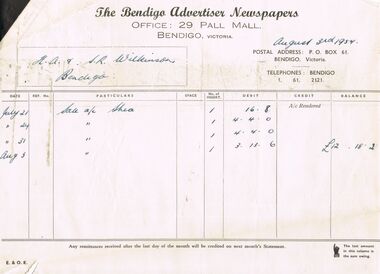 The Bendigo Advertiser Newspapers
OFFICE: 29 PALL MALL,
BENDIGO, VICTORIA.
August 3rd 1954.
POSTAL ADDRESS: P.O. BOX 61.
BENDIGO. Victoria.
TELEPHONES: BENDIGO
2121.
1, 61.
Wilkinson
Bendigo
DATE REF. No. PARTICULARS SPACE No. of INSERT. DEBIT CREDIT BALANCE
A/c Rendered
July 21 Sale a/c Shea 1 16 - 8
" 24 " 1 4 - 4 - 0
" 31 " 1 4 - 4 - 0
Aug 3 " 1 3 - 13 - 6 £12 - 18 - 2
Any remittances received after the last day of the month will be credited on next month's Statement.
The last amount
in this column is
the sum owing.
E. & O. E.